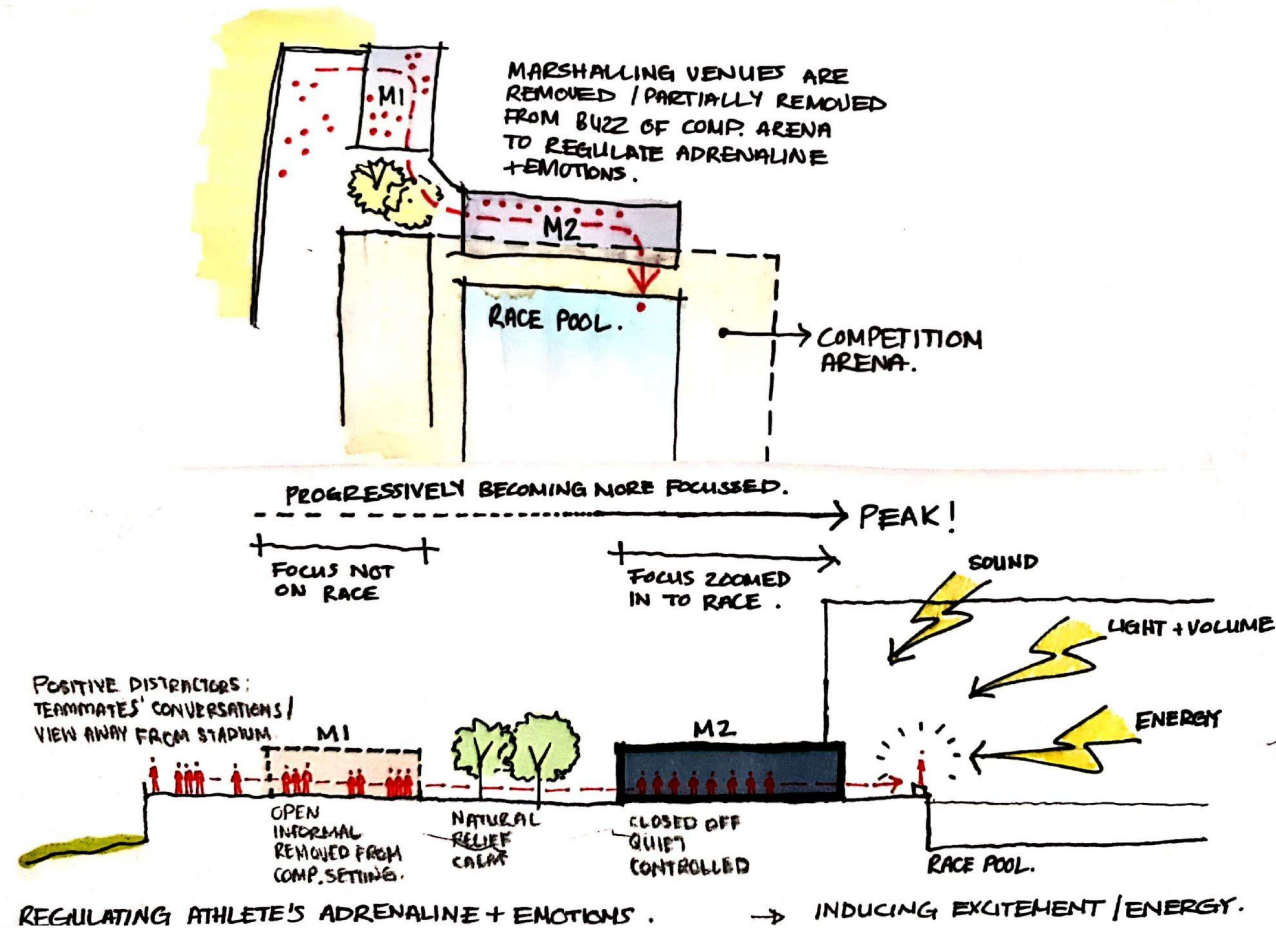 MARSHALLING VENUES ARE
REMOVED / PARTIALLY REMOVED
FROM BUZZ OF COMP. ARENA
TO REGULATE ADRENALINE
+EMOTIONS.
M1
M2
RACE POOL.
COMPETITION
ARENA.
PROGRESSIVELY BECOMING MORE FOCUSSED.
PEAK!
FOCUS NOT
ON RACE
FOCUS ZOOMED
IN TO RACE.
SOUND
LIGHT + VOLUME
ENERGY
POSITIVE DISTRACTORS:
TEAMMATES' CONVERSATIONS/
VIEW AWAY FROM STADIUM.
M1
M2
OPEN
INFORMAL
REMOVED FROM
COMP. SETTING.
NATURAL
RELIEF
CALM
CLOSED OFF
QUIET
CONTROLLED
RACE POOL.
REGULATING ATHLETE'S ADRENALINE + EMOTIONS. → INDUCING EXCITEMENT / ENERGY.